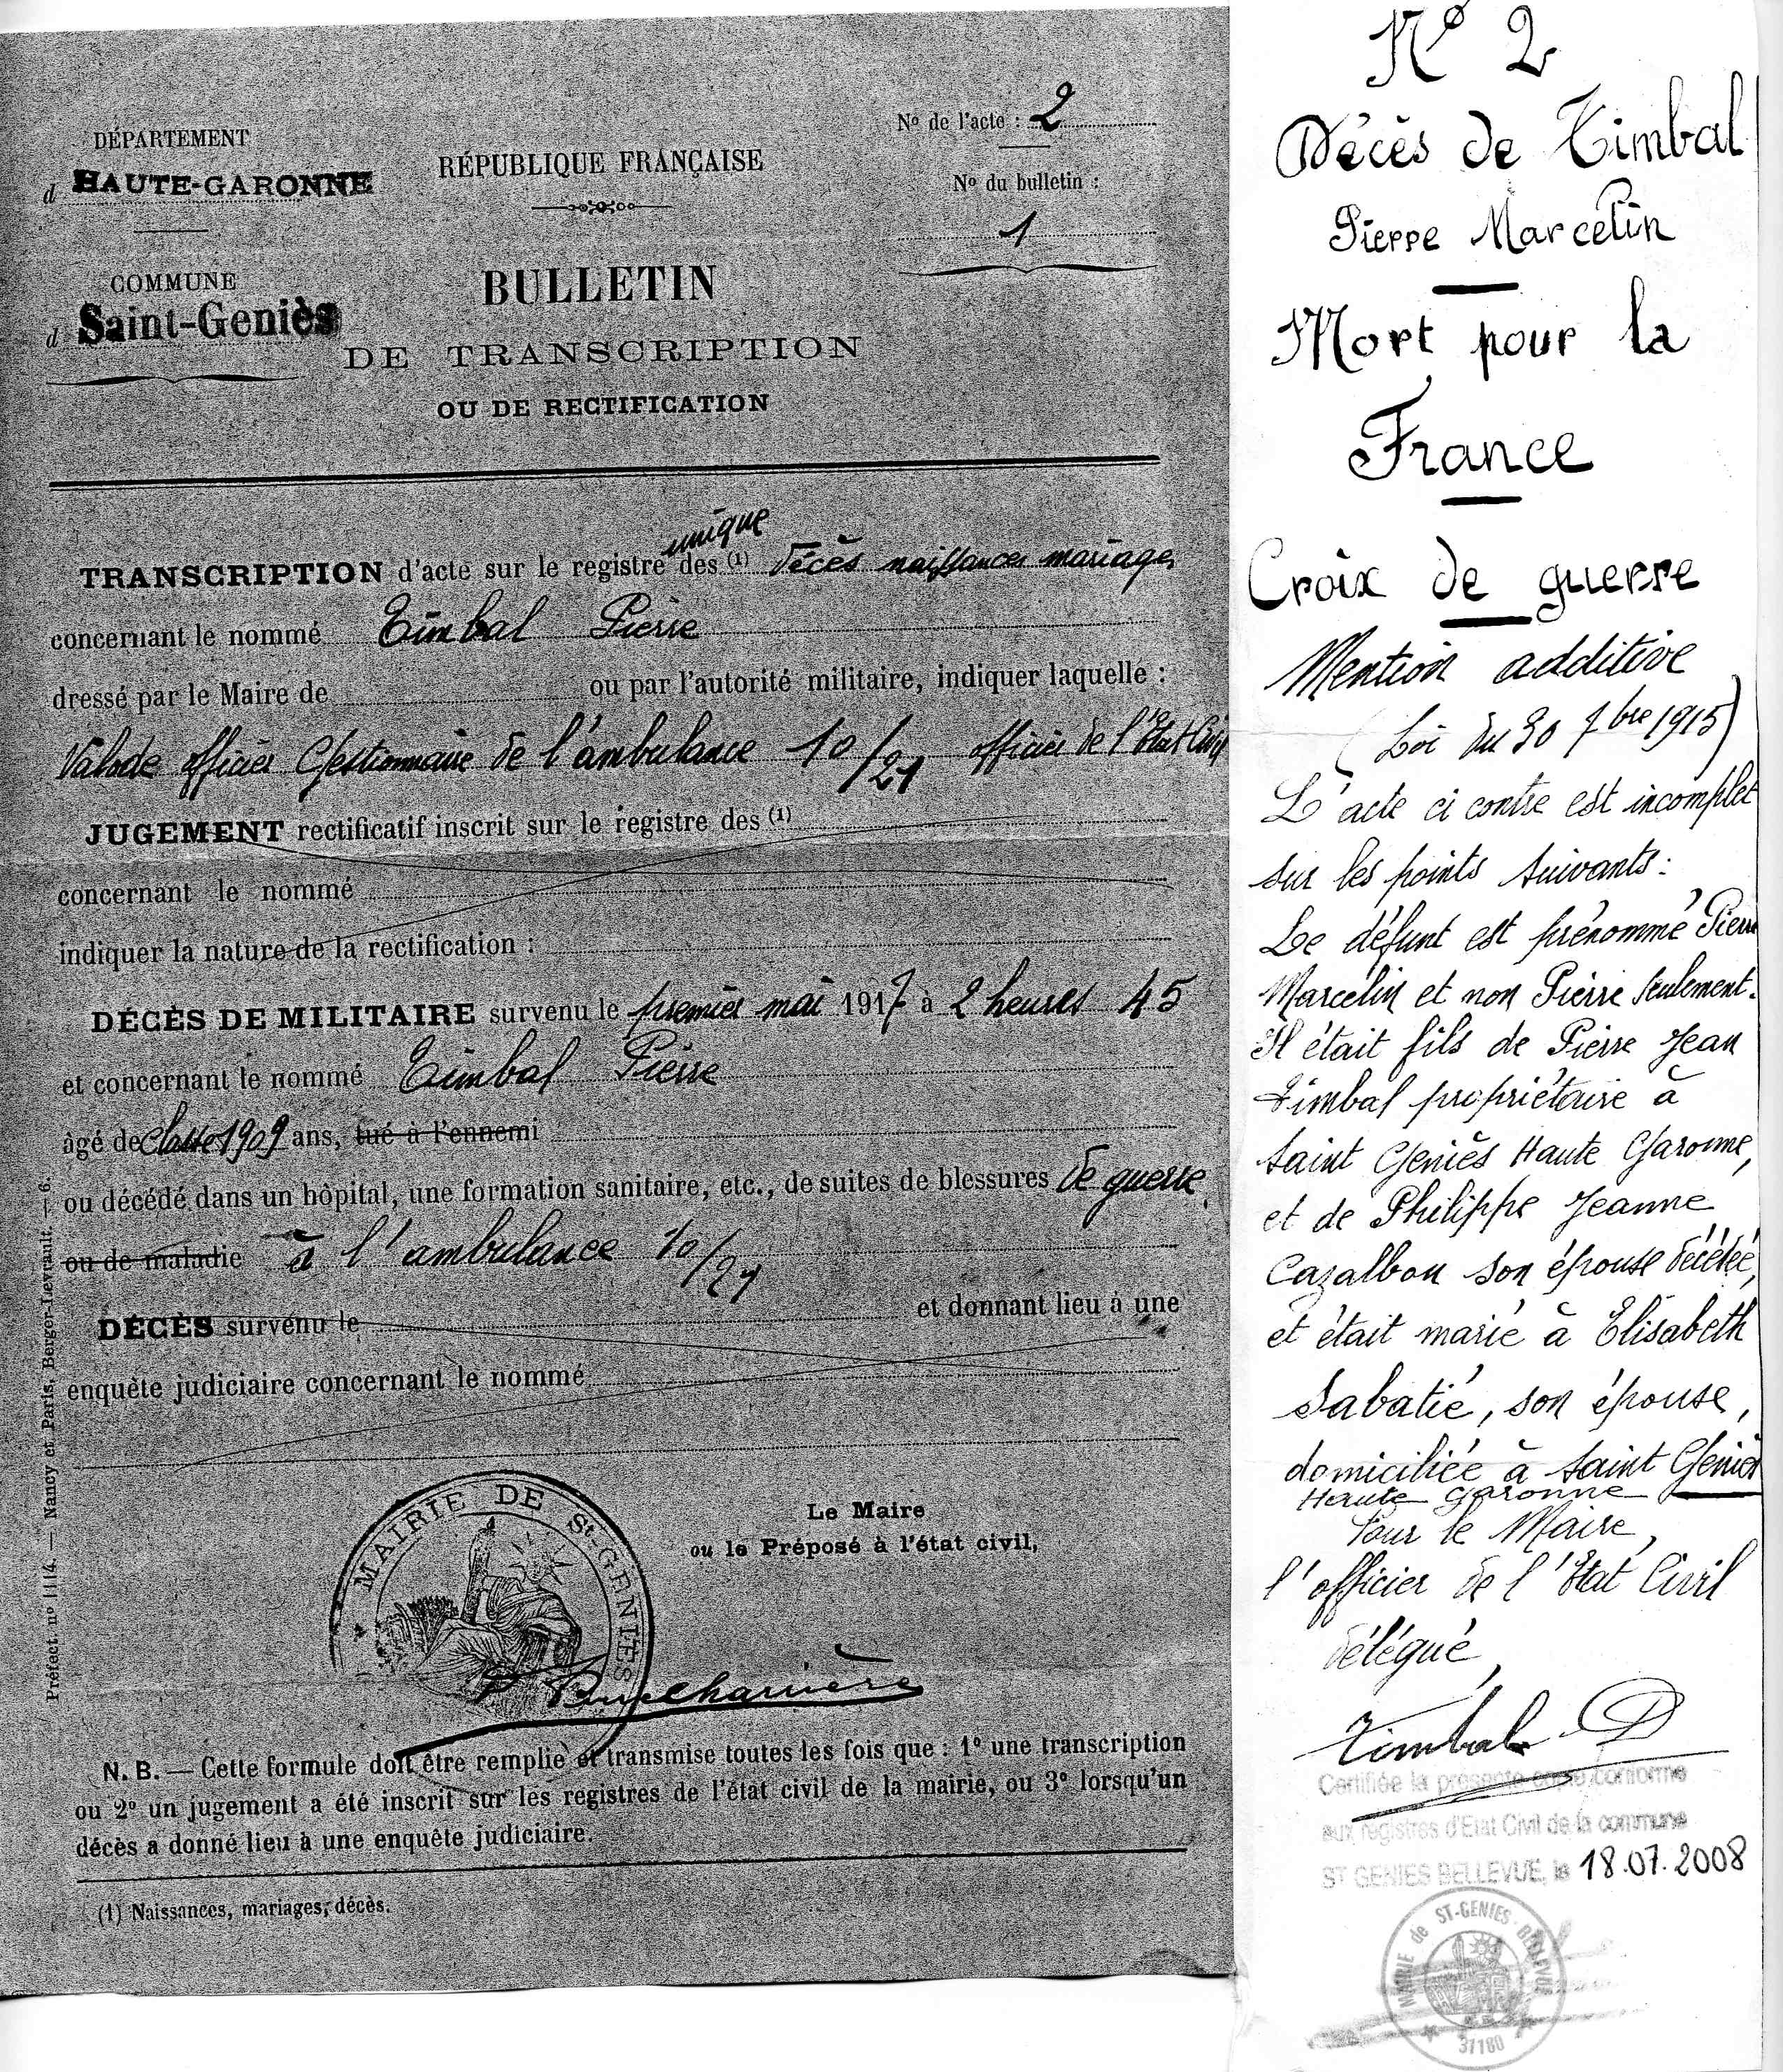 DÉPARTEMENT
d HAUTE-GARONNE
COMMUNE
d Saint-Geniès
RÉPUBLIQUE FRANÇAISE
BULLETIN
DE TRANSCRIPTION
OU DE RECTIFICATION
Nº de l'acte : 2
Nº du bulletin :
1
unique
TRANSCRIPTION d'acte sur le registre des (1) Décès naissances mariages
concernant le nommé Timbal Pierre
dressé par le Maire de ou par l'autorité militaire, indiquer laquelle :
Valode officier Gestionnaire de l'ambulance 10/21 officier de l'Etat Civil
JUGEMENT rectificatif inscrit sur le registre des (1)
concernant le nommé
indiquer la nature de la rectification :
DÉCÈS DE MILITAIRE survenu le premier mai 1917 à 2 heures 45
et concernant le nommé Timbal Pierre
âgé de classe 1909 ans, tué à l'ennemi
ou décédé dans un hôpital, une formation sanitaire, etc., de suites de blessures de guerre
ou de maladie à l'ambulance 10/21
DÉCÈS survenu le et donnant lieu à une
enquête judiciaire concernant le nommé
Le Maire
ou le Préposé à l'état civil,
MAIRIE DE St-GENIES
N. B. — Cette formule doit être remplie et transmise toutes les fois que : 1º une transcription
ou 2º un jugement a été inscrit sur les registres de l'état civil de la mairie, ou 3º lorsqu'un
décès a donné lieu à une enquête judiciaire.
(1) Naissances, mariages, décès.
Préfect. nº 1114. — Nancy et Paris, Berger-Levrault. — 6.
Nº 2
Décès de Timbal
Pierre Marcelin
Mort pour la
France
Croix de guerre
Mention additive
(Loi du 30 7bre 1915)
L'acte ci contre est incomplet
sur les points suivants :
Le défunt est prénommé Pierre
Marcelin et non Pierre seulement.
Il était fils de Pierre Jean
Timbal propriétaire à
Saint Geniès Haute Garonne,
et de Philippe Jeanne
Cazalbou son épouse décédée,
et était marié à Elisabeth
Sabatié, son épouse,
domiciliée à Saint Geniès
Haute Garonne
Pour le Maire,
l'officier de l'Etat Civil
délégué,
Timbal
Certifiée la présente copie conforme
aux registres d'Etat Civil de la commune
ST GENIES BELLEVUE, le 18.07.2008
MAIRIE de ST-GENIES-BELLEVUE
31180